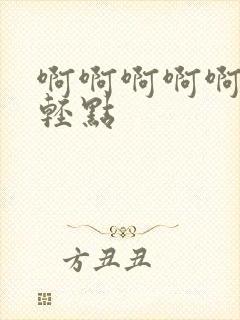 啊啊啊啊啊
輕點
方丑丑